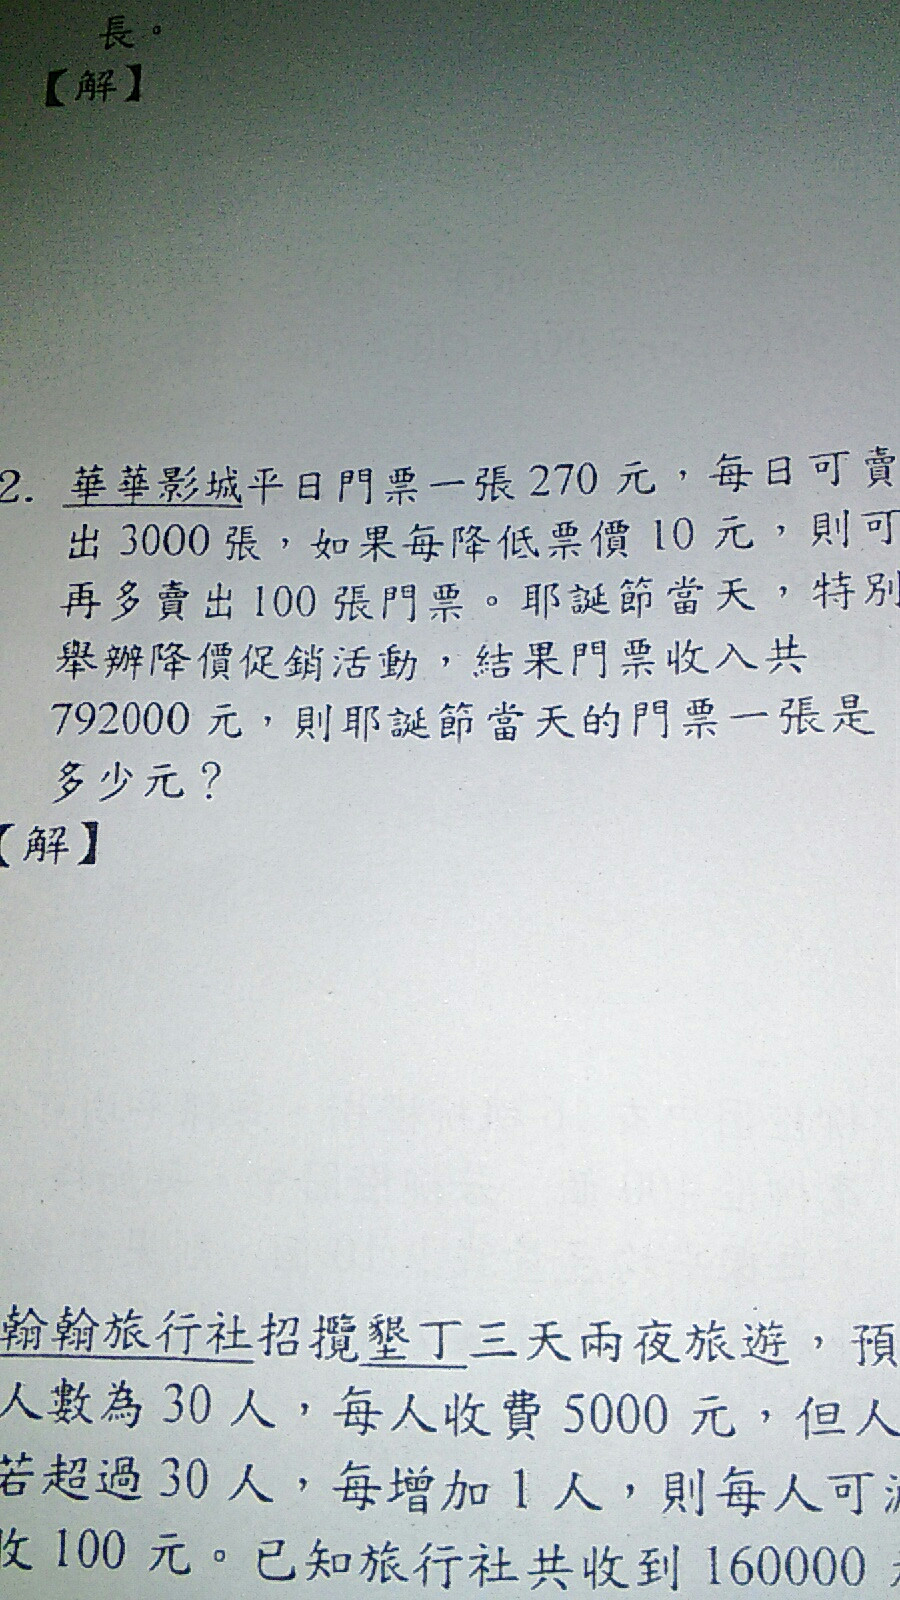 長。
【解】
2. 華華影城平日門票一張270元，每日可賣
出3000張，如果每降低票價10元，則可
再多賣出100張門票。耶誕節當天，特別
舉辦降價促銷活動，結果門票收入共
792000元，則耶誕節當天的門票一張是
多少元？
【解】
翰翰旅行社招攬墾丁三天兩夜旅遊，預
人數為30人，每人收費5000元，但人
若超過30人，每增加1人，則每人可
收100元。已知旅行社共收到160000